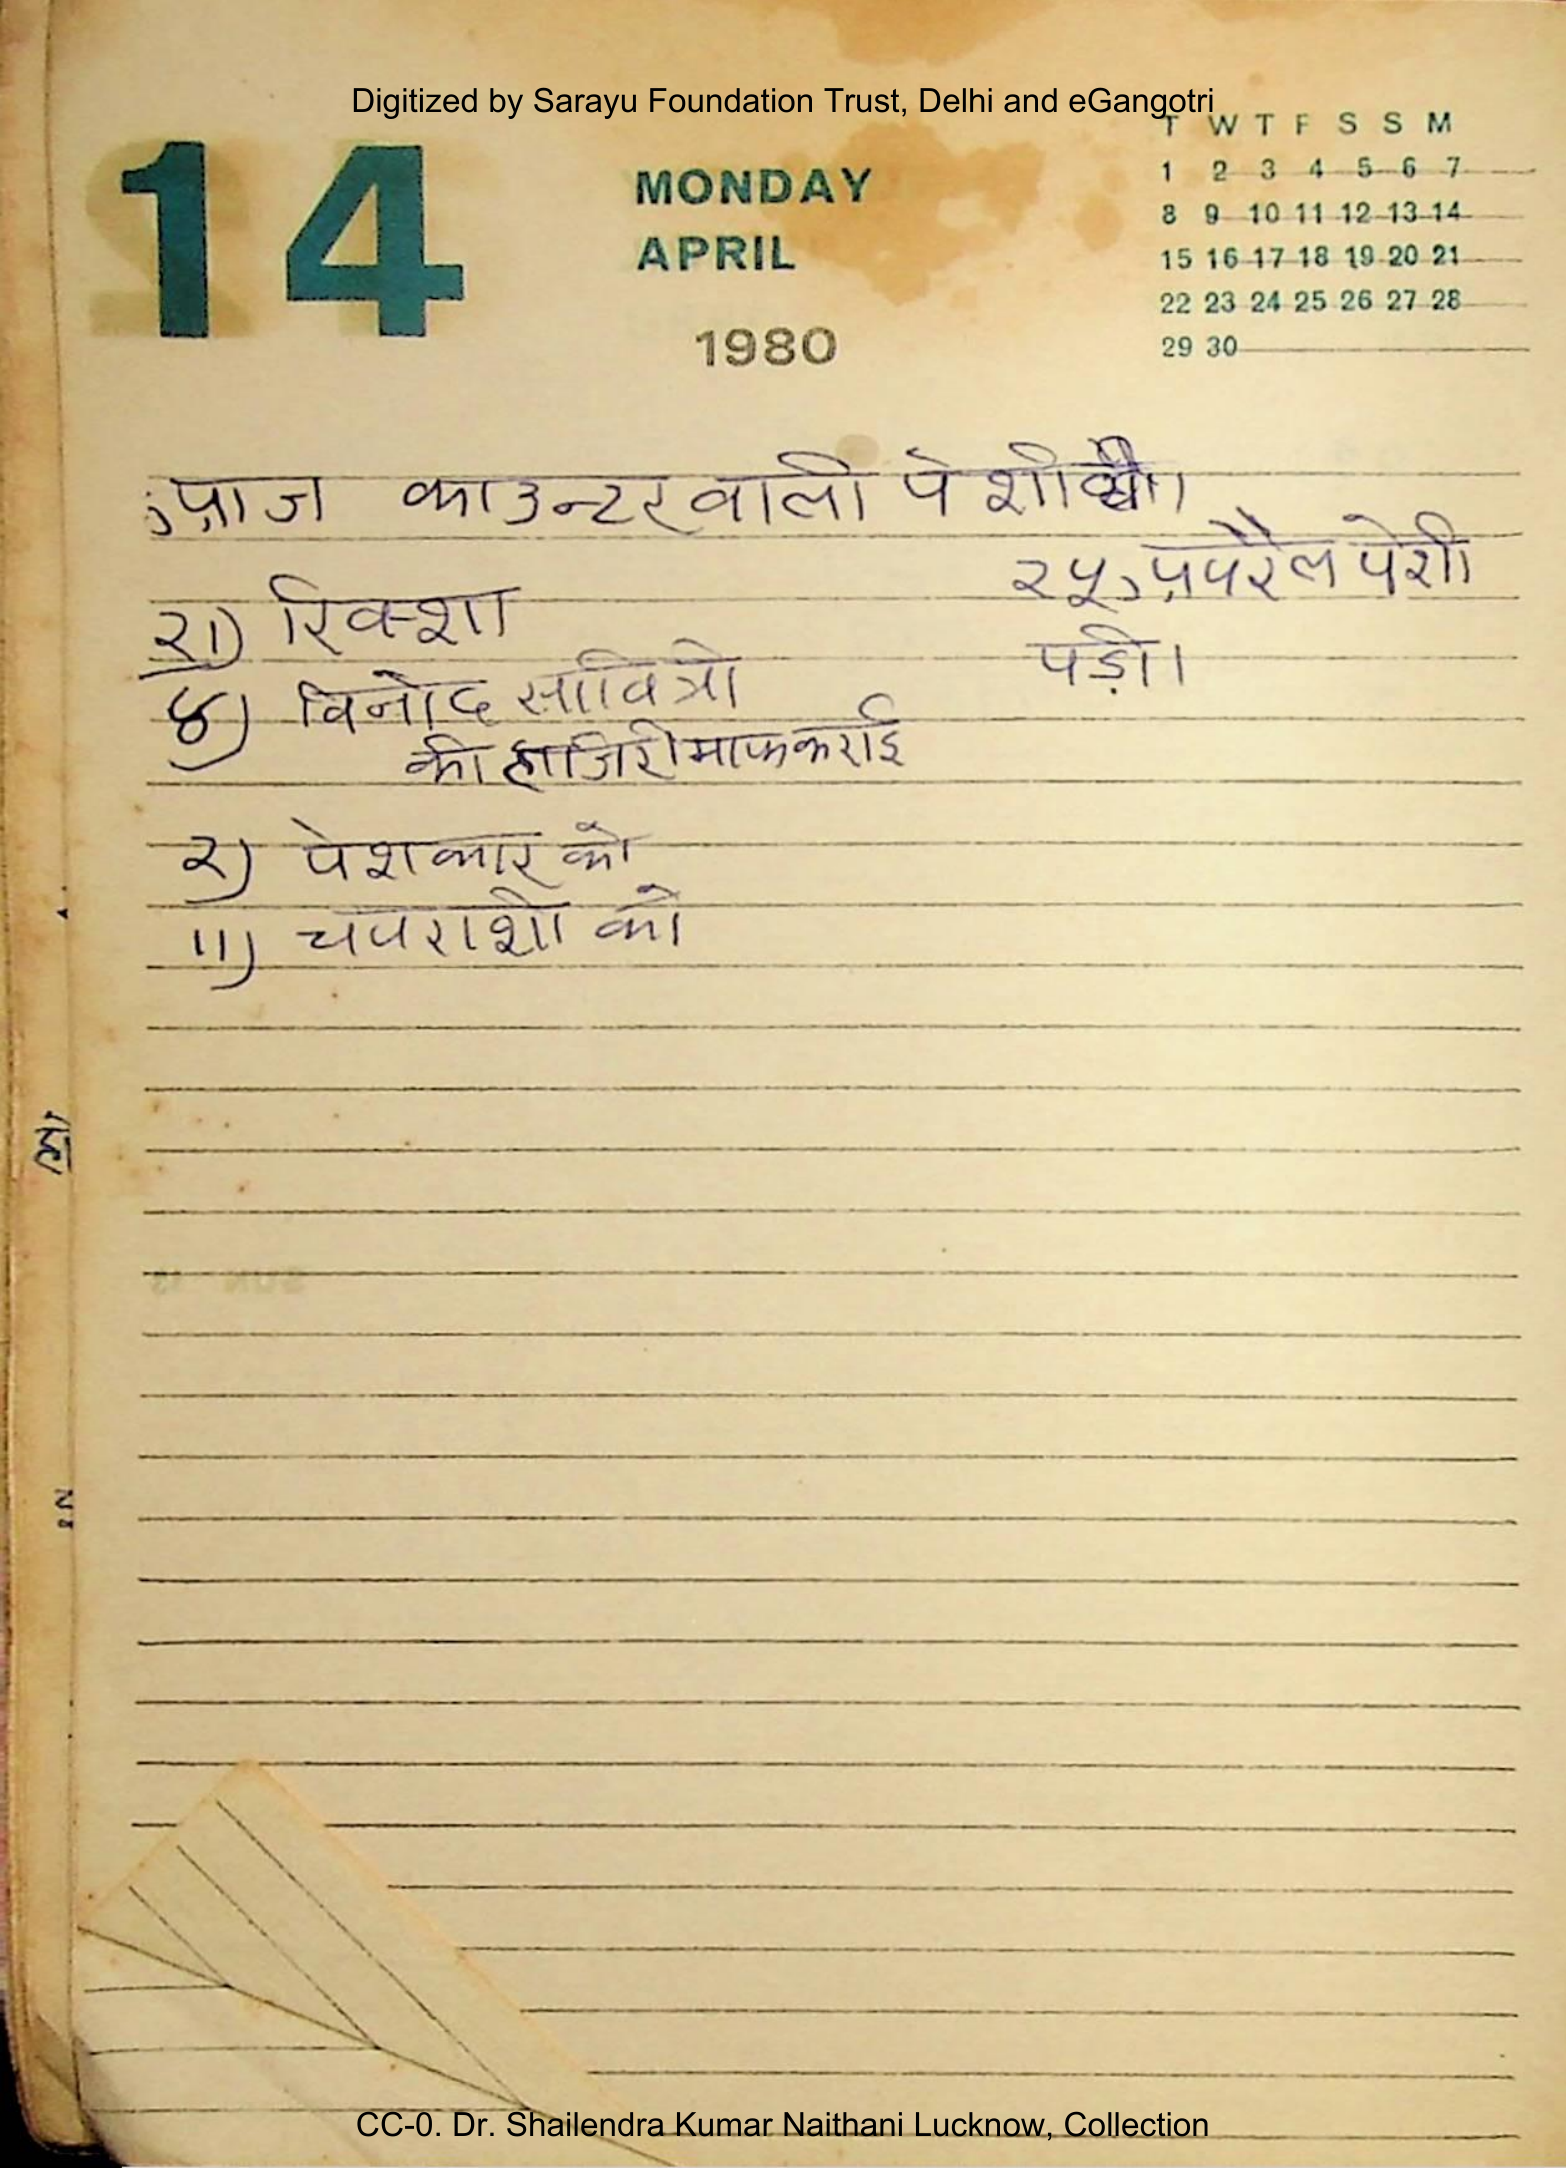 Digitized by Sarayu Foundation Trust, Delhi and eGangotri
T W T F S S M
1 2 3 4 5 6 7
8 9 10 11 12 13 14
15 16 17 18 19 20 21
22 23 24 25 26 27 28
29 30
14
MONDAY
APRIL
1980
आज काउन्टर वाली पेशी थी।
२५ अपरैल पेशी
पड़ी।
२।) रिक्शा
४) विनोद सावित्री
की हाजिरी माफ कराई
२) पेशकार को
॥) चपराशी को
CC-0. Dr. Shailendra Kumar Naithani Lucknow, Collection